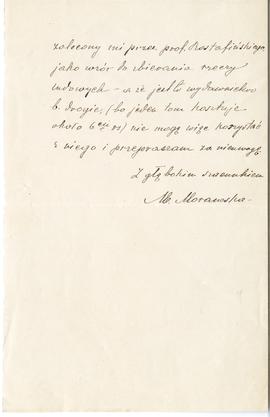 zalecony mi przez prof. Rostafińskiego
jako wzór do zbierania rzeczy
ludowych – a że jest to wydawnictwo
b. drogie, (bo jeden tom kosztuje
około 6 rs) nie mogę więc korzystać
z niego i przepraszam za niewagę
Z głębokim szacunkiem
M. Morawska –